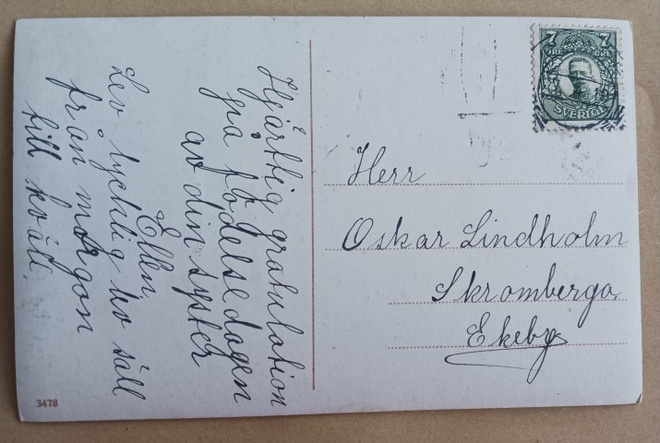 Hjärttig gratulation
på födelsedagen
av din syster
Ellen
Lev lychlig lev säll
från morgon
till kväll.
7 7
SVERIGE
Herr
Oskar Lindholm
Skromberga
Ekeby
3478